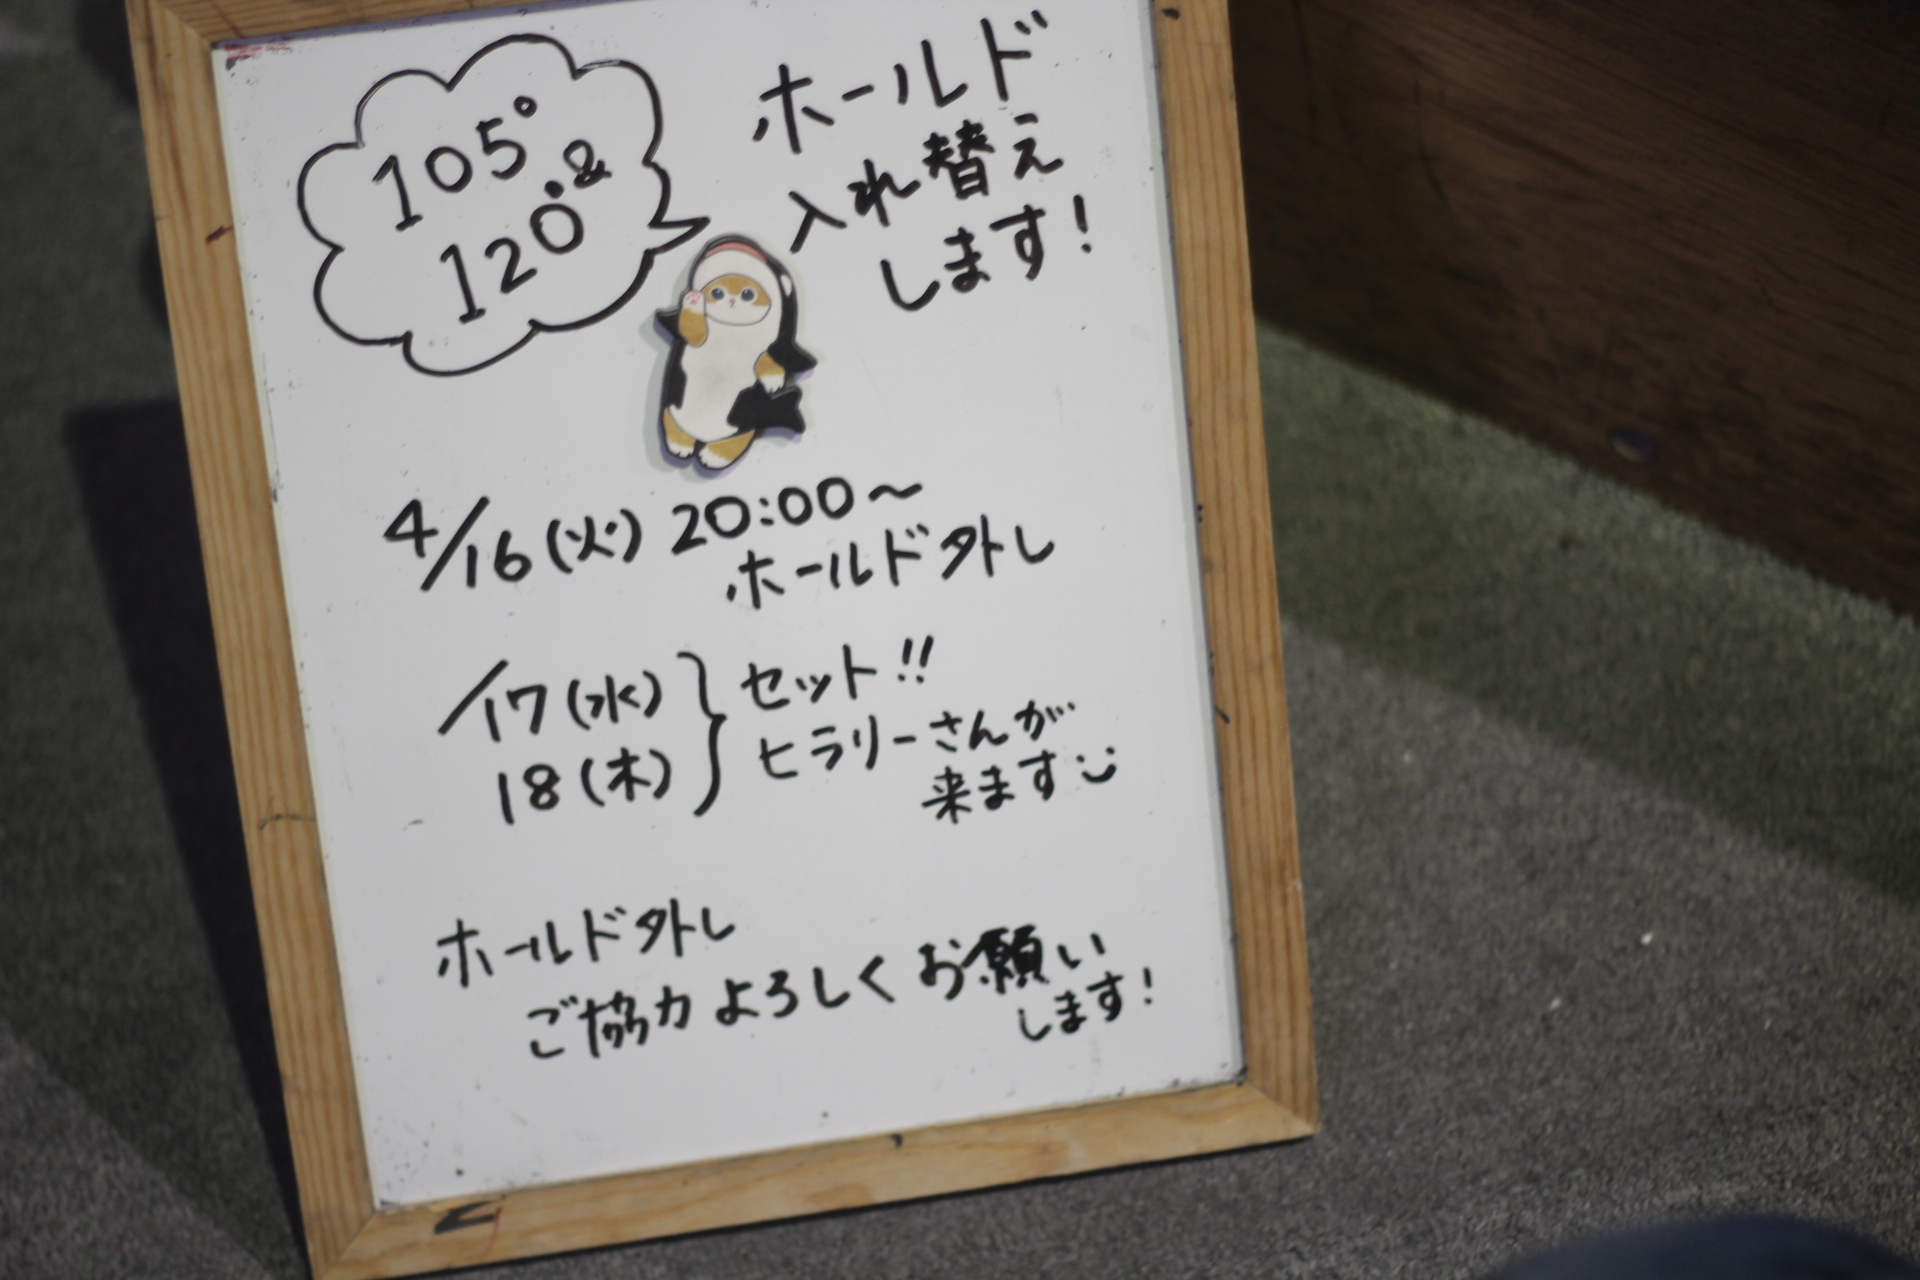 105°&
120°
ホールド
入れ替え
します!
4/16(火) 20:00〜
ホールド外し
/17(水)
18(木)
セット!!
ヒラリーさんが
来ます
ホールド外し
ご協力よろしくお願い
します!